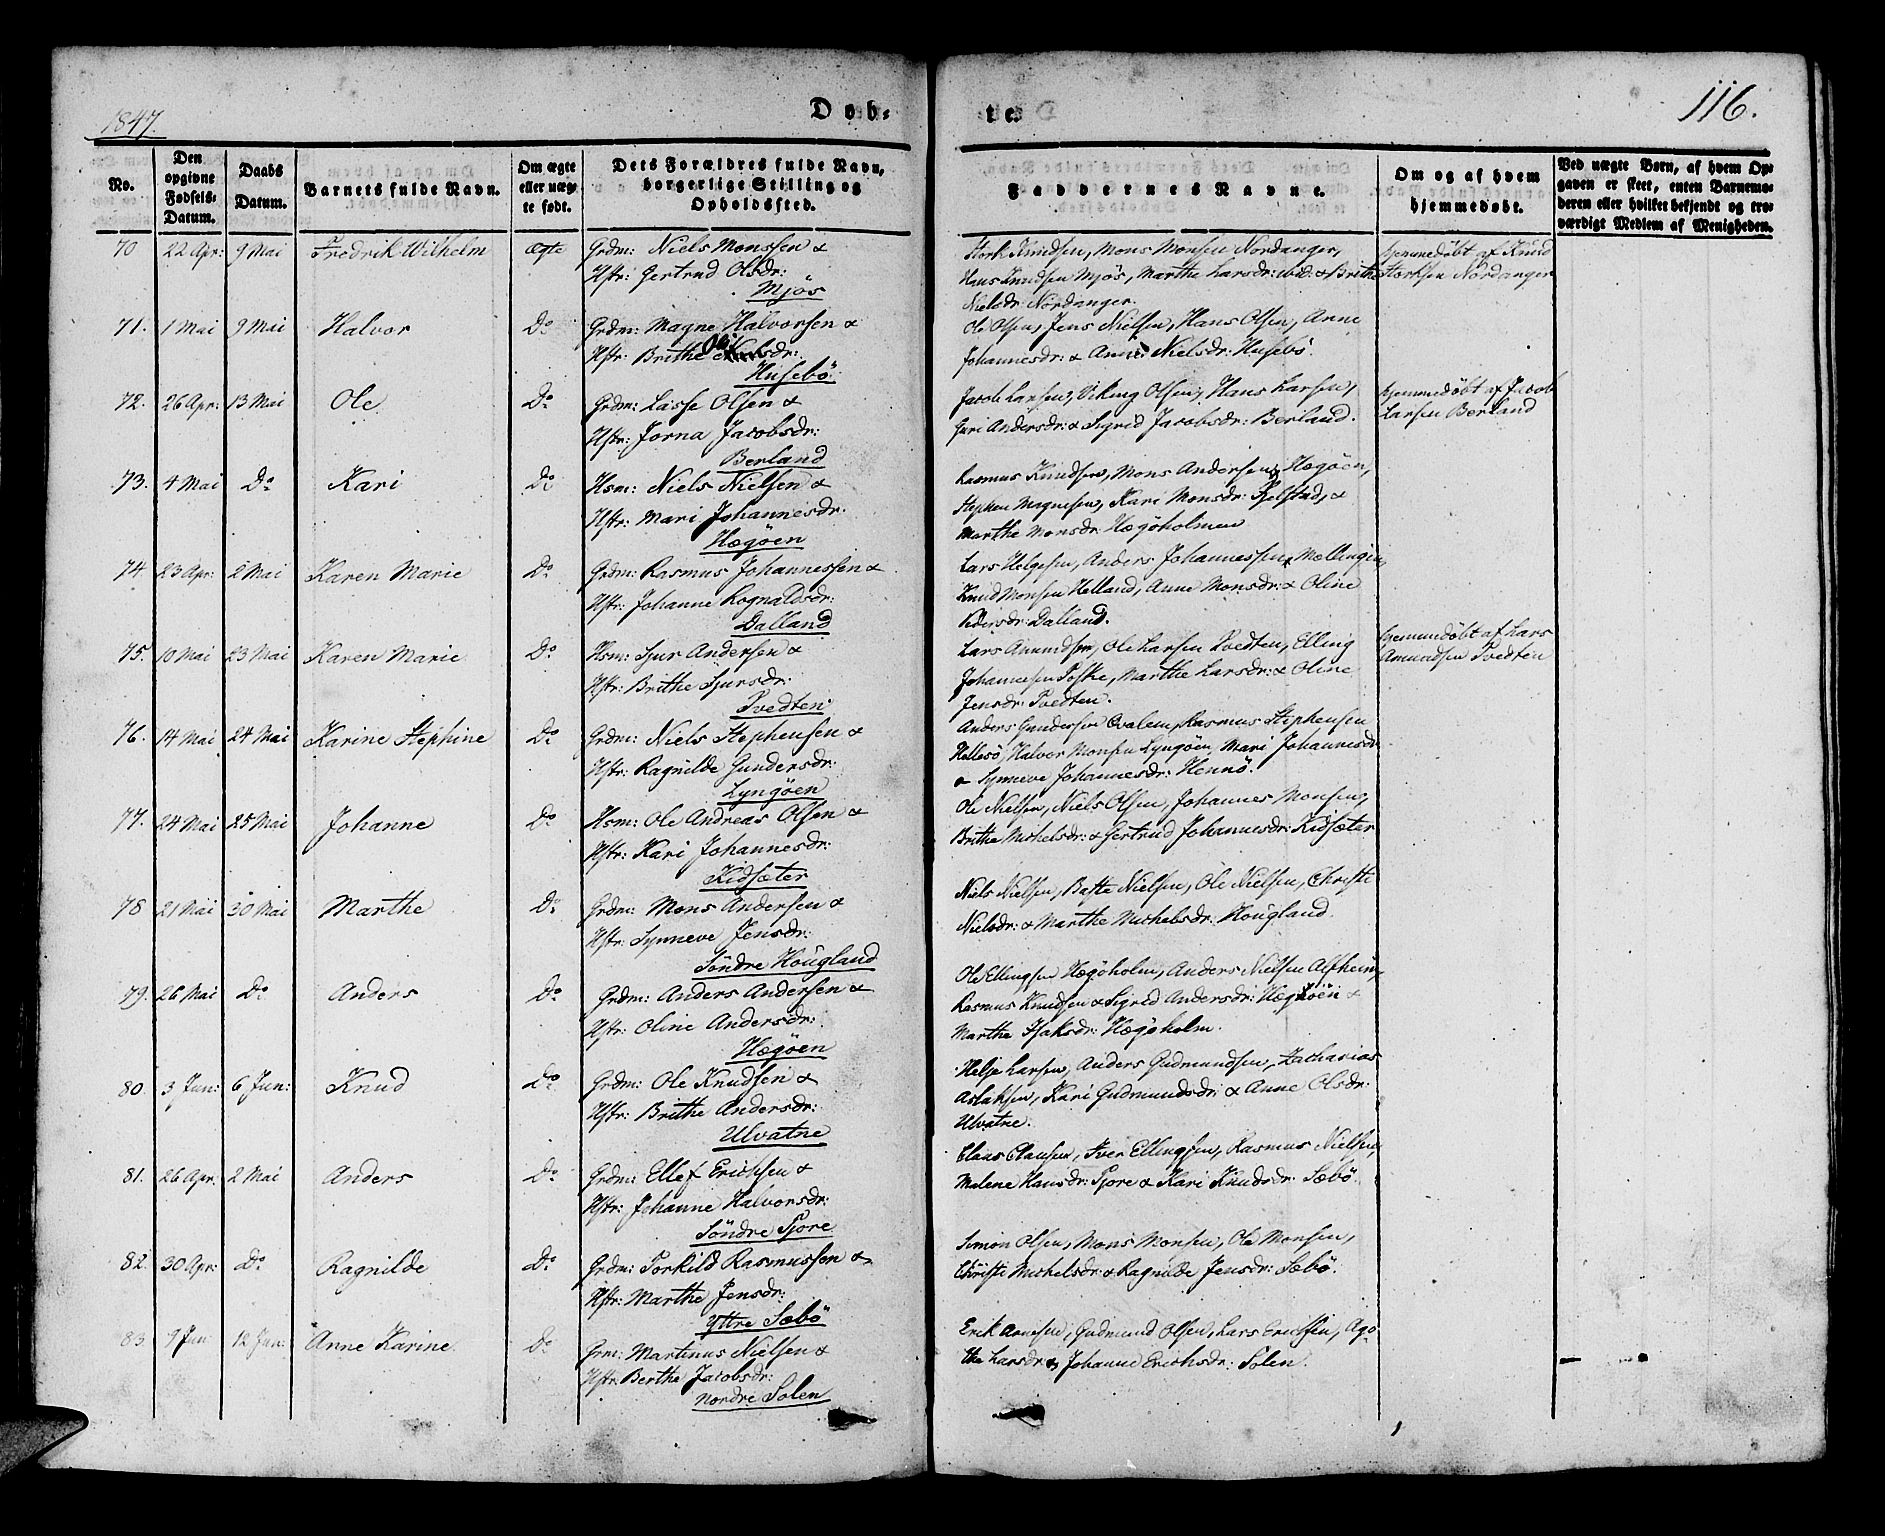 1847.
Døb-
te.
116.
No.
Den opgivne Fødsels-Datum.
Daabs Datum.
Barnets fulde Navn.
Om ægte eller uægte født.
Dets Forældres fulde Navn, borgerlige Stilling og Opholdssted.
Faddernes Navne.
Om og af hvem hjemmedøbt.
Ved uægte Børn, af hvem Opgaven er skeet, enten Barnemoderen eller hvilket bekjendt og troværdigt Medlem af Menigheden.
70 22 Apr: 9 Mai Fredrik Wilhelm ægte Grdm: Niels Monssen &
Hstr: Gertrud Olsdr:
Mjøs
Stork Knudsen, Mons Monsen Nordanger,
Hans Knudsen Mjøs, Marthe Larsdr: ibid: & Brithe
Nielsdr: Nordanger.
hjemmedøbt af Knud
Storksen Nordanger
71. 1 Mai 9 Mai Halvor Do Grdm: Magne Halvorsen &
Hstr: Brithe Olsdr:
Husebö
Ole Olsen, Jens Nielsen, Hans Olsen, Anne
Johannesdr: & Anne Nielsdr: Husebö.
72. 26 Apr: 13 Mai Ole Do Grdm: Lasse Olsen &
Hstr: Jorna Jacobsdr:
Berland
Jacob Larsen, Viking Olsen, Hans Larsen,
Guri Andersdr: & Sigrid Jacobsdr: Berland.
hjemmedöbt af Jacob
Larsen Berland
73. 4 Mai Do Kari Do Hsm: Niels Nielsen &
Hstr: Mari Johannesdr:
Hægöen
Rasmus Knudsen, Mons Andersen Hægöen,
Stephen Magnesen, Kari Monsdr: &
Marthe Monsdr: Hægöholmen
74. 23 Apr: 2 Mai Karen Marie Do Grdm: Rasmus Johannessen &
Hstr: Johanne Rognaldsdr:
Dalland
Lars Helgesen, Anders Johannessen Møllingen,
Knud Monsen Helland, Anne Monsdr: & Oline
Pedersdr: Dalland.
75. 10 Mai 23 Mai Karen Marie Do Hsm: Sjur Andersen &
Hstr: Brithe Sjursdr:
Tvedten
Lars Amundsen, Ole Larsen Tvedten, Elling
Johannesen Toske, Marthe Larsdr: & Oline
Jensdr: Tvedten.
hjemmedöbt af Lars
Amundsen Tvedten
76. 14 Mai 24 Mai Karine Stephine Do Grdm: Niels Stephensen &
Hstr: Ragnilde Gundersdr:
Lyngöen
Anders Gundersen Qvalem, Rasmus Stephensen
Hallesö, Halvor Monsen Lyngöen, Mari Johannesdr:
& Synneve Johannesdr: Hennö.
77. 24 Mai 25 Mai Johanne Do Hsm: Ole Andreas Olsen &
Hstr: Kari Johannesdr:
Kidsæter
Ole Nielsen, Niels Olsen, Johannes Monsen,
Brithe Michelsdr: & Gertrud Johannesdr: Kidsæter
78 21 Mai 30 Mai Marthe Do Grdm: Mons Andersen &
Hstr: Synneve Jensdr:
Söndre Hougland
Niels Nielsen, Baste Nielsen, Ole Nielsen, Christi
Nielsdr: & Marthe Michelsdr: Hougland.
79. 26 Mai Do Anders Do Grdm: Anders Andersen &
Hstr: Oline Andersdr:
Hægöen
Ole Ellingsen Hægöholm, Anders Nielsen Alfheim,
Rasmus Knudsen & Sigrid Andersdr: Hægöen &
Marthe Isaksdr: Hægöholm.
80. 3 Jun: 6 Jun: Knud Do Grdm: Ole Knudsen &
Hstr: Brithe Andersdr:
Ulvatne
Helje Larsen, Anders Gudmundsen, Zacharias
Aslaksen, Kari Gudmundsdr: & Anne Olsdr:
Ulvatne.
81. 26 Apr. 2 Mai Anders Do Grdm: Ellef Erichsen &
Hstr: Johanne Halvorsdr:
Söndre Tjore
Claas Clausen, Iver Ellingsen, Rasmus Nielsen,
Malene Hansdr: Tjore & Kari Knudsdr: Sæbö.
82. 30 Apr: Do Ragnilde Do Grdm: Torkild Rasmussen &
Hstr: Marthe Jensdr:
Yttre Sæbö
Simon Olsen, Mons Monsen, Ole Monsen,
Christi Michelsdr: & Ragnilde Jensdr: Sæbö.
83. 9 Jun 12 Jun: Anne Karine Do Grm: Martinus Nielsen &
Hstr: Berthe Jacobsdr:
Nordre Solen
Erik Arnesen, Gudmund Olsen, Lars Erichsen, Ago-
the Larsdr: & Johanne Erichsdr: Solen.